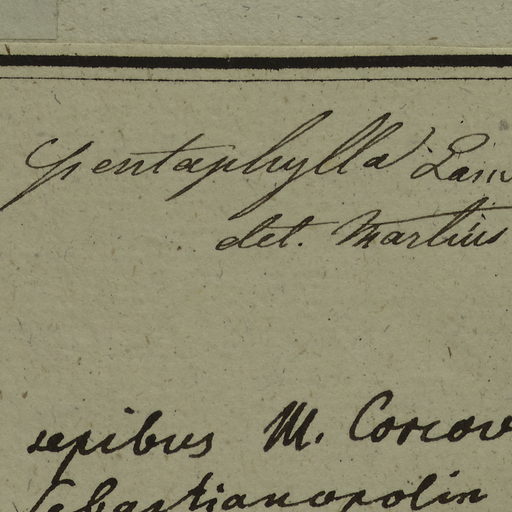 pentaphylla Lam
det. Martius
sepibus M. Corcov
Sebastianopolin